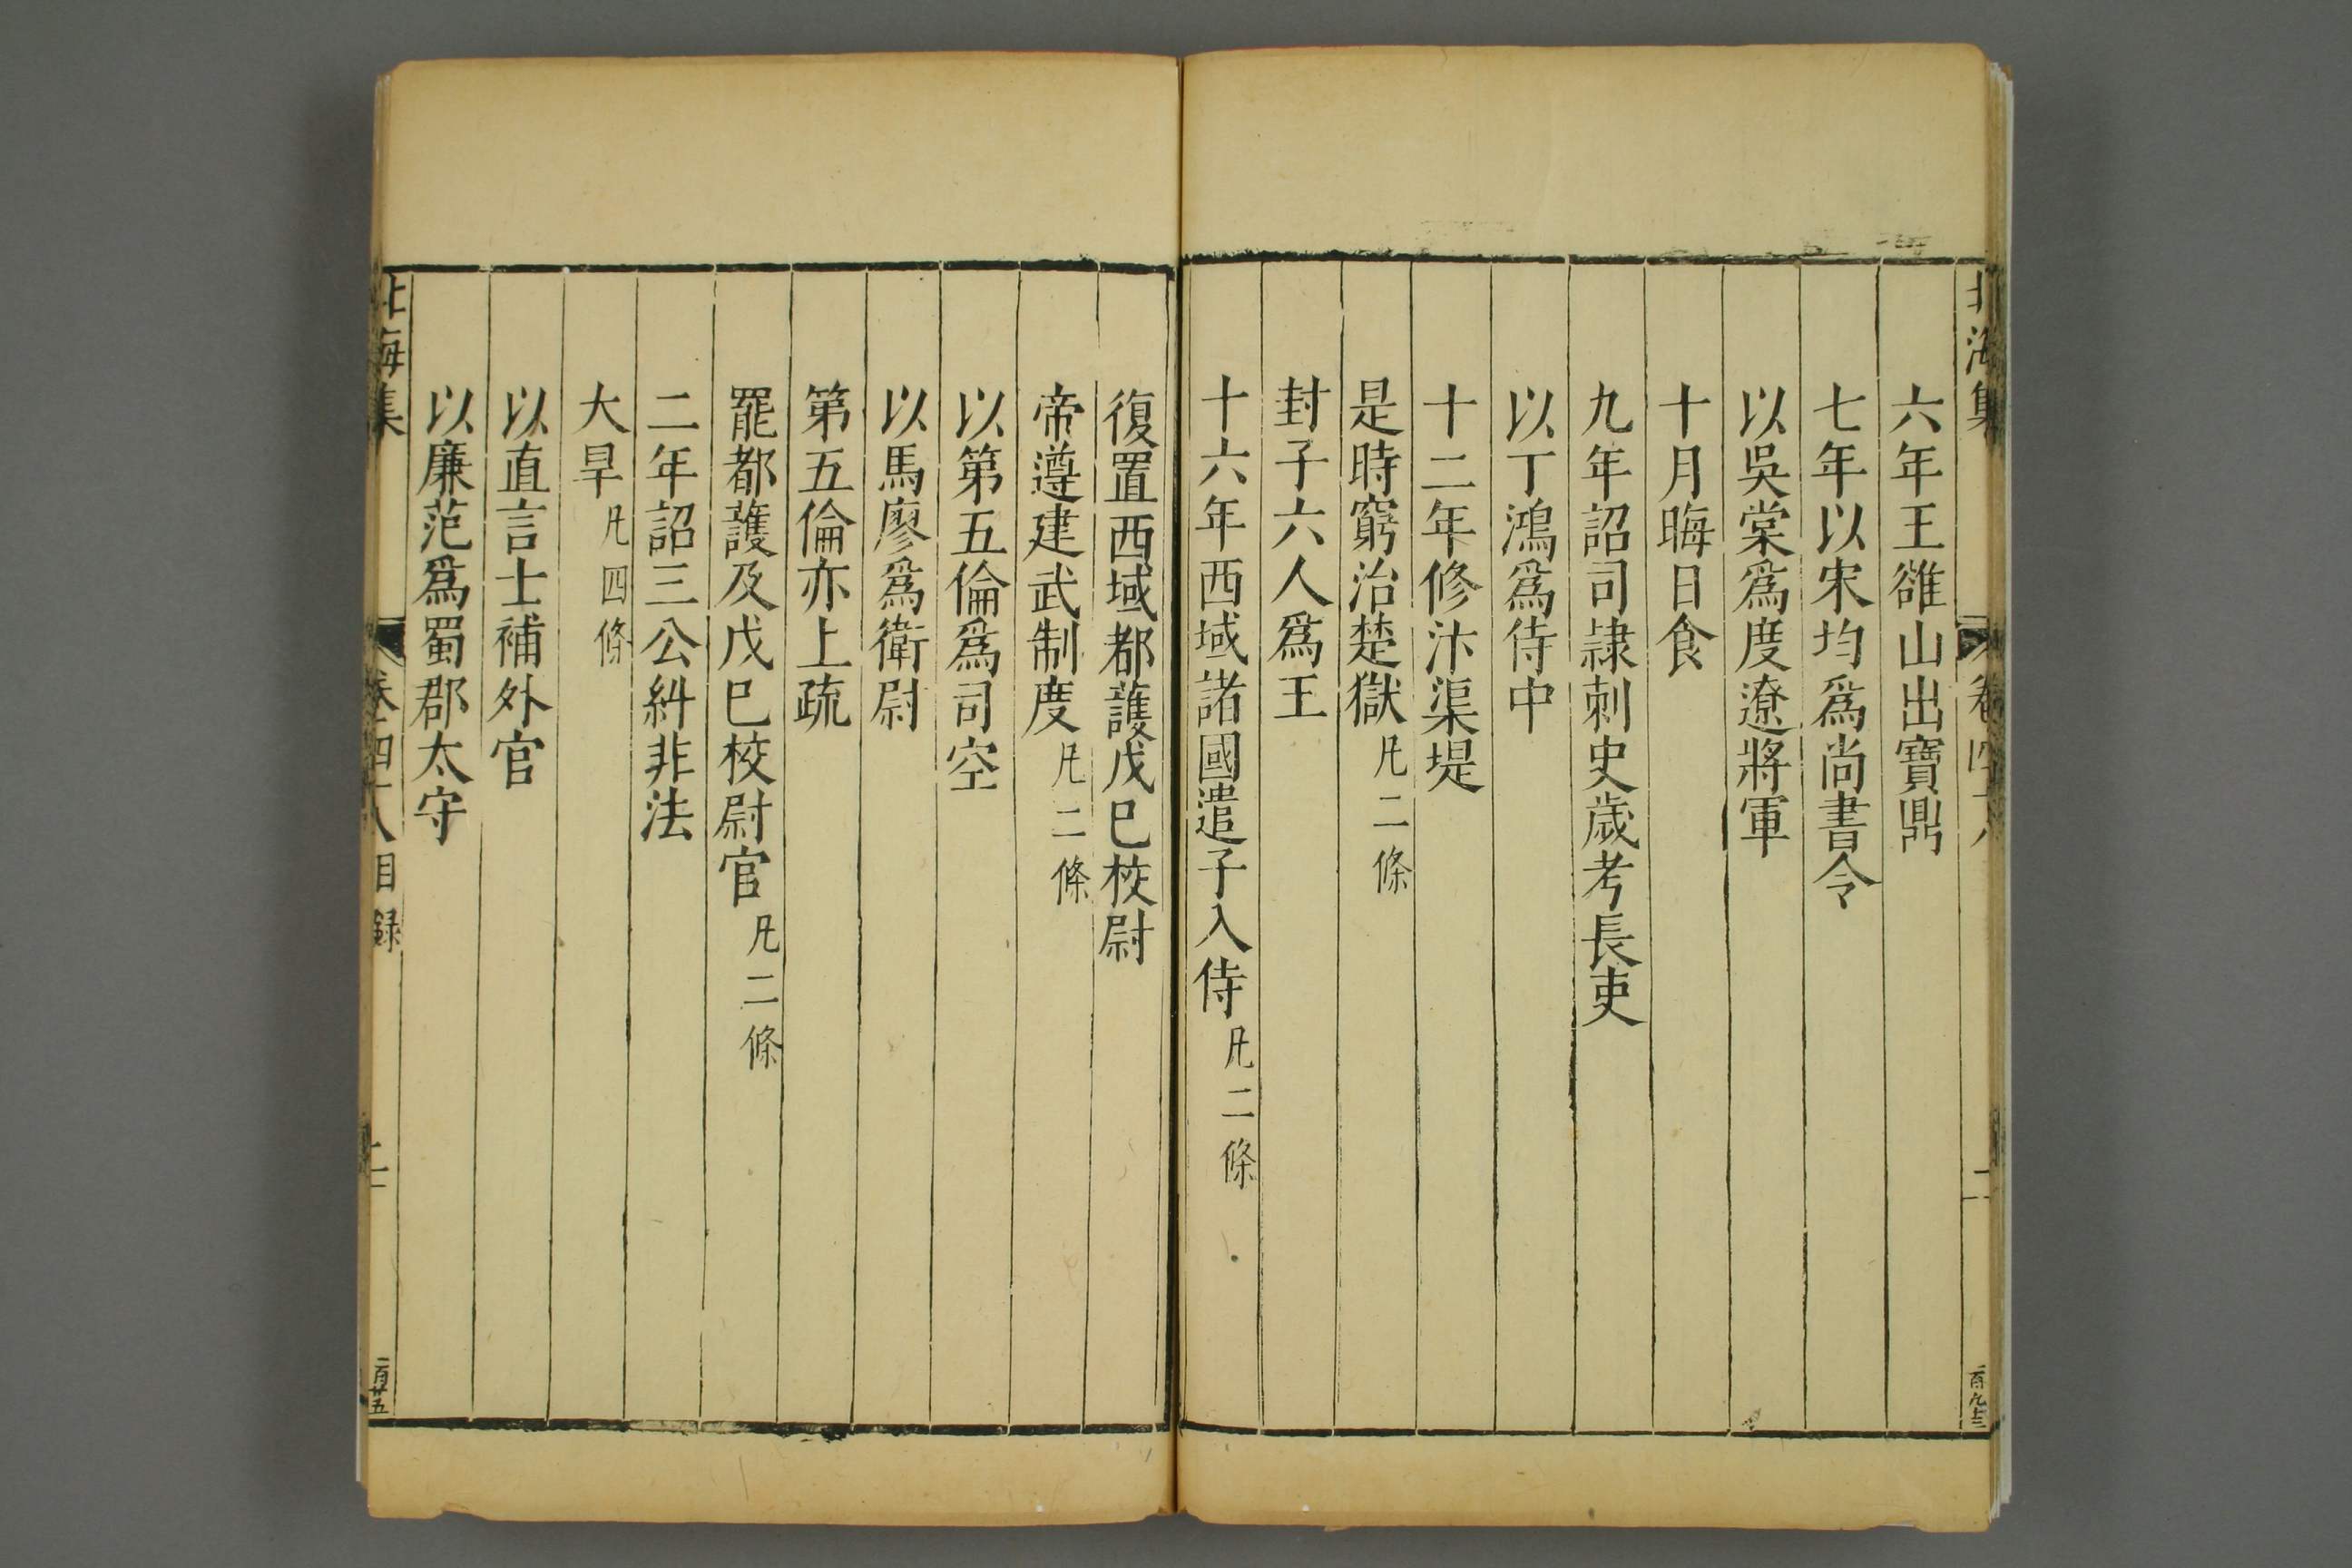 北海集
卷四十八
二
六年王雒山出寶鼎
七年以宋均爲尚書令
以吳棠爲度遼將軍
十月晦日食
九年詔司隷刺史歲考長吏
以丁鴻爲侍中
十二年修汴渠堤
是時窮治楚獄凡二條
封子六人爲王
十六年西域諸國遣子入侍凡二條
復置西域都護戊巳校尉
帝遵建武制度凡二條
以第五倫爲司空
以馬廖爲衛尉
第五倫亦上疏
罷都護及戊巳校尉官凡二條
二年詔三公糾非法
大旱凡四條
以直言士補外官
以廉范爲蜀郡太守
北海集
卷四十八目録